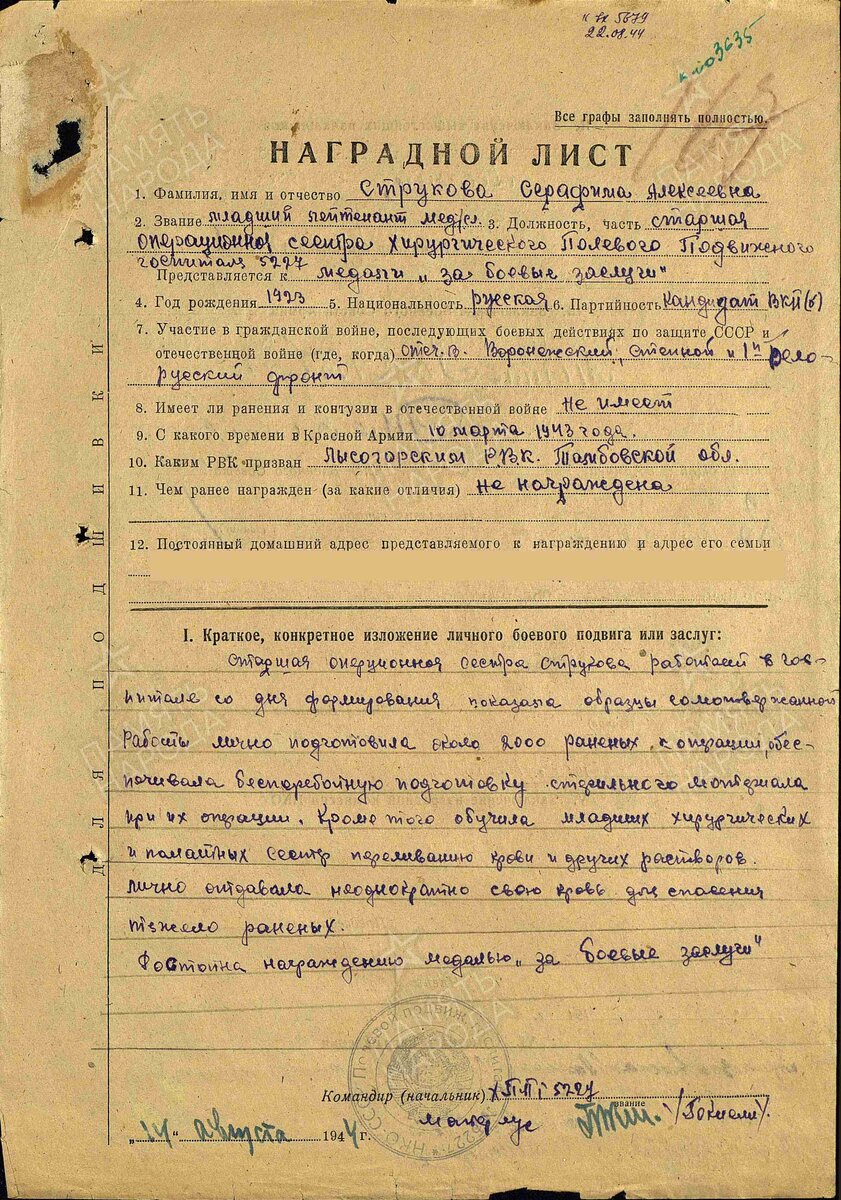 к вх 5679
22.08.44
Все графы заполнять полностью.
НАГРАДНОЙ ЛИСТ
1. Фамилия, имя и отчество Струкова Серафима Алексеевна
2. Звание младший лейтенант мед/сл. 3. Должность, часть старшая
операционная сестра Хирургического Полевого Подвижного
госпиталя 5227
Представляется к медали „за боевые заслуги"
4. Год рождения 1923 5. Национальность русская 6. Партийность Кандидат ВКП(б)
7. Участие в гражданской войне, последующих боевых действиях по защите СССР и
отечественной войне (где, когда) отеч.в. Воронежский, степной и 1й Бело-
русский фронт
8. Имеет ли ранения и контузии в отечественной войне не имеет
9. С какого времени в Красной Армии 10 марта 1943 года.
10. Каким РВК призван Лысогорским Р.В.К. Тамбовской обл.
11. Чем ранее награжден (за какие отличия) не награждена
12. Постоянный домашний адрес представляемого к награждению и адрес его семьи
ДЛЯ ПОДШИВКИ
I. Краткое, конкретное изложение личного боевого подвига или заслуг:
Старшая операционная сестра Струкова работает в гос-
питале со дня формирования показала образцы самоотверженной
работы лично подготовила около 2000 раненых к операции, обес-
печивала бесперебойную подготовку стерильного материала
при их операции. Кроме того обучила младших хирургических
и палатных сестер переливанию крови и других растворов.
лично отдавала неоднократно свою кровь для спасения
тяжело раненых.
Достойна награждению медалью „за боевые заслуги"
Командир (начальник) ХППГ 5227
звание
„14" августа 1944 г.
ПАМЯТЬ НАРОДА